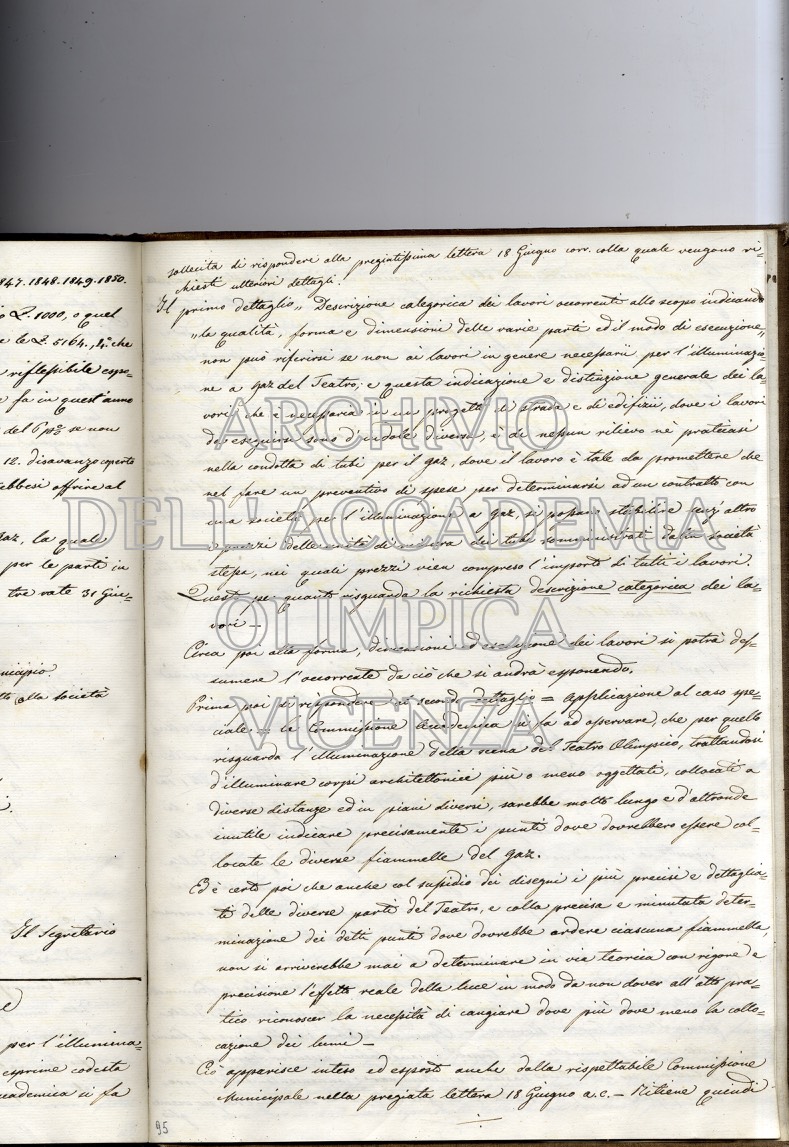 847.1848.1849.1850.
L. 1000, o quel
e le L. 5164.,12 che
riflessibile espo=
e fa in quest'anno
del Ppo se non
12. disavanzo coperto
ebbesi offrire al
gaz, la quale
per le parti in
tre rate 31 Giu=
nicipio.
alla società
Il Segretario
per l'illumina=
esprime codesta
cademica si fa
sollecita di rispondere alla pregiatissima lettera 18 Giugno corr. colla quale vengono ri=
chiesti ulteriori dettagli.
Il primo dettaglio „ Descrizione categorica dei lavori occorrenti allo scopo indicando
„ la qualità, forma e dimensioni delle varie parti ed il modo di esecuzione „
non può riferirsi se non ai lavori in genere necessarii per l'illuminazio=
ne a gaz del Teatro; e questa indicazione e distinzione generale dei la=
vori, che è necessaria in un progetto di strada e di edifizii, dove i lavori
da eseguirsi sono d'indole diversa, è di nessun rilievo nè praticasi
nella condotta di tubi per il gaz, dove il lavoro è tale da promettere che
nel fare un preventivo di spese per determinarsi ad un contratto con
una società per l'illuminazione a gaz si possano stabilire senz'altro
i prezzi delle unità di misura dei tubi somministrati dalla società
stessa, nei quali prezzi vien compreso l'importo di tutti i lavori.
Questo per quanto risguarda la richiesta descrizione categorica dei la=
vori –
Circa poi alla forma, dimensioni ed esecuzione dei lavori si potrà des=
sumere l'occorrente da ciò che si andrà esponendo.
Prima poi di rispondere al secondo dettaglio = applicazione al caso spe=
ciale = la Commissione Accademica si fa ad osservare, che per quello
risguarda l'illuminazione della scena del Teatro Olimpico, trattandosi
d'illuminare corpi architettonici più o meno oggettati, collocati a
diverse distanze ed in piani diversi, sarebbe molto lungo e d'altronde
inutile indicare precisamente i punti dove dovrebbero essere col=
locate le diverse fiammelle del gaz.
Ed è certo poi che anche col sussidio dei disegni i più precisi e dettaglia=
ti delle diverse parti del Teatro, e colla precisa e minutata deter=
minazione dei detti punti dove dovrebbe ardere ciascuna fiammella,
non si arriverebbe mai a determinare in via teorica con rigore e
precisione l'effetto reale della luce in modo da non dover all'atto pra=
tico riconoscer la necessità di cangiare dove più dove meno la collo=
cazione dei lumi –
Ciò apparisce inteso ed esposto anche dalla rispettabile Commissione
Municipale nella pregiata lettera 18 Giugno a.c. – Ritiene quindi
95
ARCHIVIO
DELL'ACCADEMIA
OLIMPICA
VICENZA